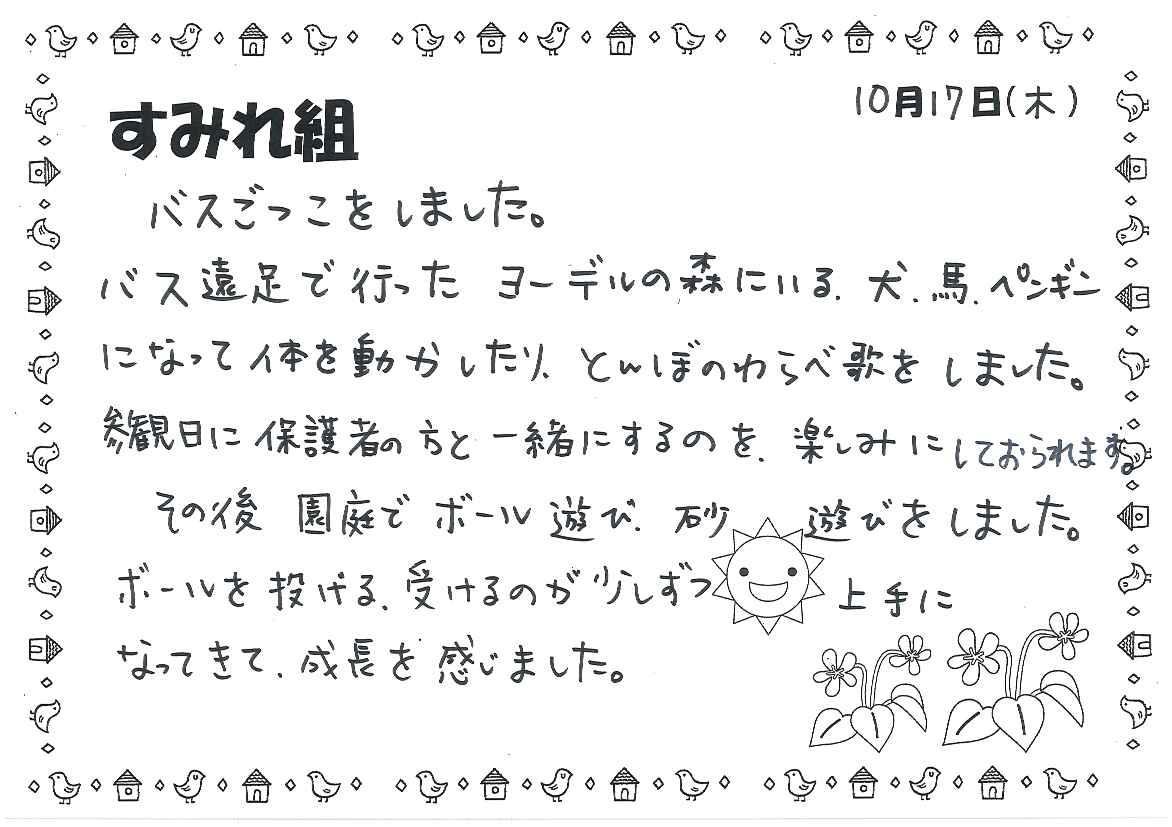 10月17日(木)
すみれ組
バスごっこをしました。
バス遠足で行った ヨーデルの森にいる、犬、馬、ペンギン
になって体を動かしたり、とんぼのわらべ歌をしました。
参観日に保護者の方と一緒にするのを、楽しみにしておられます。
その後 園庭でボール遊び、砂 遊びをしました。
ボールを投げる、受けるのが少しずつ 上手に
なってきて、成長を感じました。